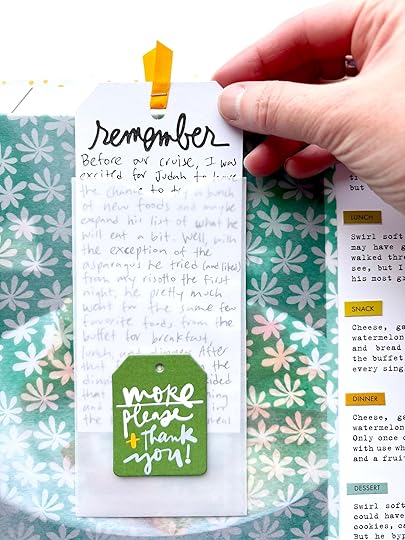 remember
Before our cruise, I was
excited for Judah to have
the chance to try a bunch
of new foods and maybe
expand his list of what he
will eat a bit. Well, with
the exception of the
asparagus he tried (and liked)
from my risotto the first
night, he pretty much
went for the same few
favorite foods from the
buffet for breakfast,
and dinner. After
that the
dinner decided
that
and
more
please
+ thank
you!
but
LUNCH
Swirl soft
may have g
walked thro
see, but I
his most gr
SNACK
Cheese, ga
watermelon
and bread
the buffet
every sing
DINNER
Cheese, ga
watermelon
Only once o
with use wh
and a fruit
DESSERT
Swirl soft
could have
cookies, ca
But he byp